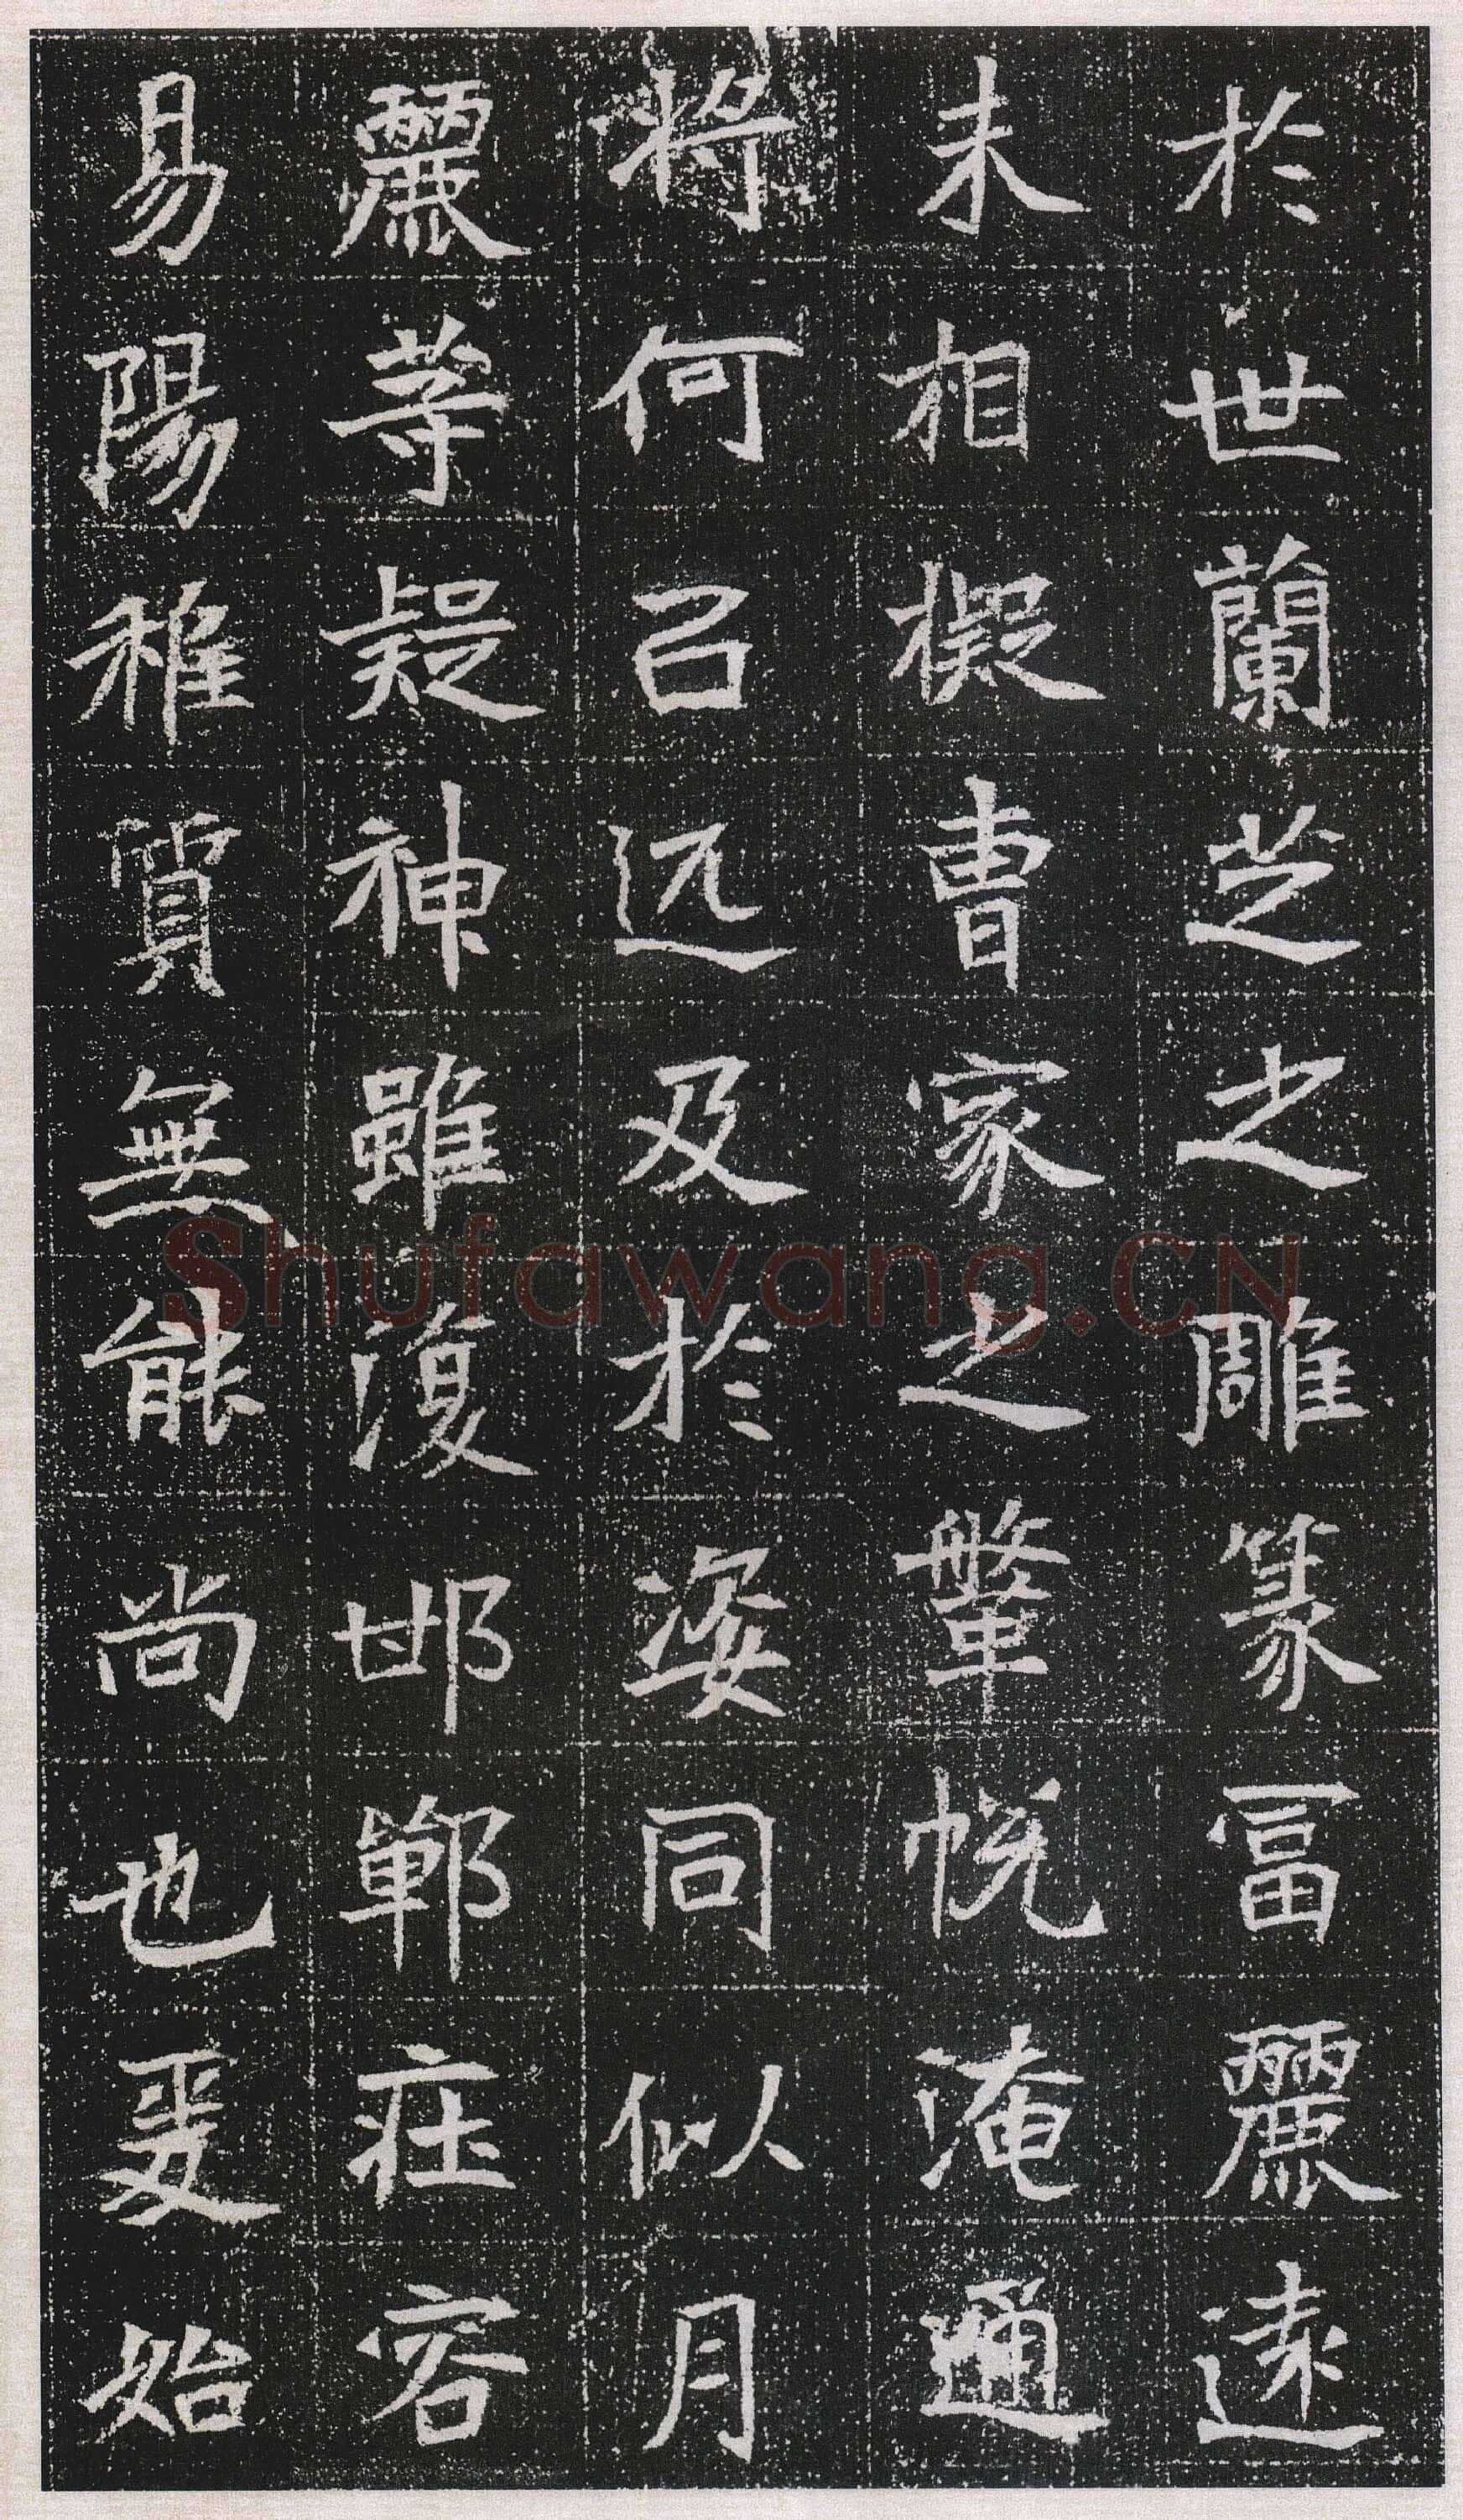 於世蘭芝之雕篆富麗遠
未相擬曹家之鞶帨淹通
将何以远及於姿同似月
麗等疑神雖復邯鄲莊容
易陽稚質無能尚也爰始
Shufawang.CN